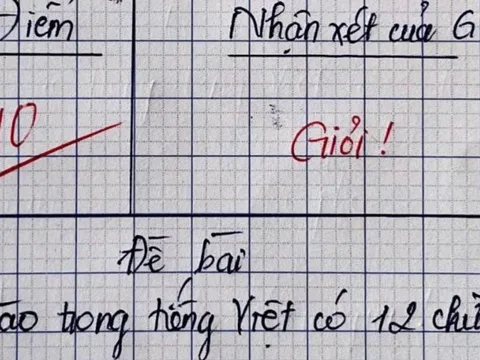 Điểm
Nhận xét của G
10
Giỏi!
Đề bài
ào trong tiếng Việt có 12 chữ